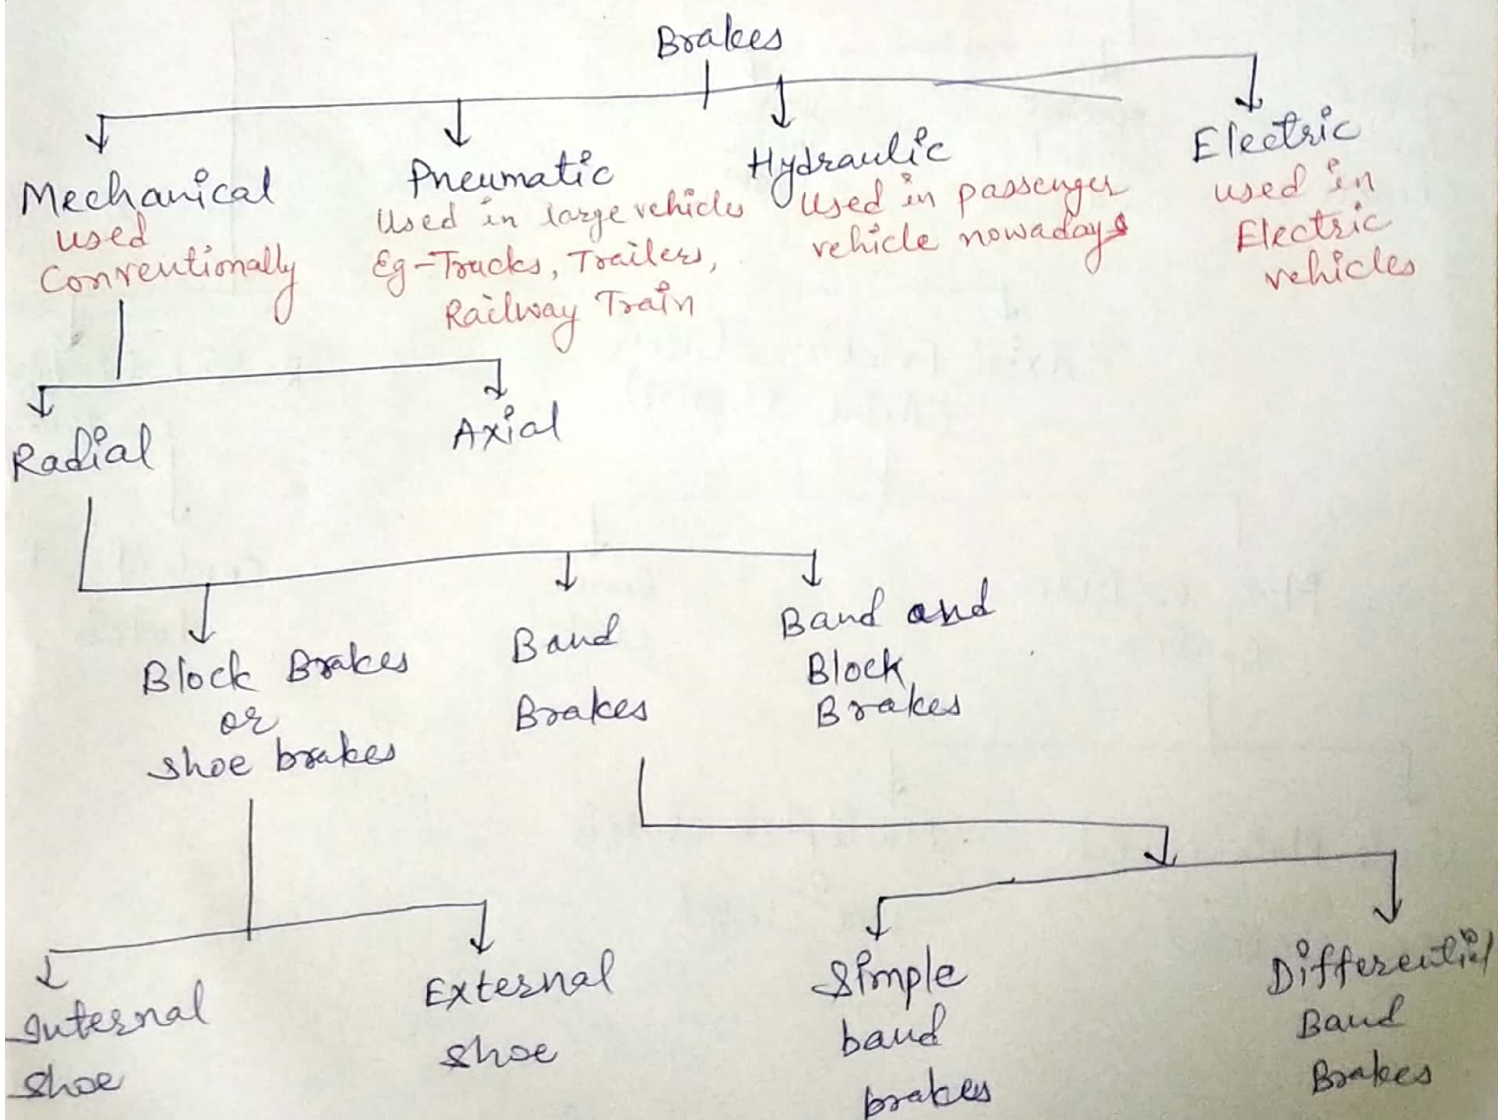 Brakes
Mechanical
used
Conventionally
Pneumatic
Used in large vehicles
Eg-Trucks, Trailers,
Railway Train
Hydraulic
Used in passenger
vehicle nowadays
Electric
used in
Electric
vehicles
Radial
Axial
Block Brakes
or
shoe brakes
Band
Brakes
Band and
Block
Brakes
Internal
shoe
External
shoe
Simple
band
brakes
Differential
Band
Brakes